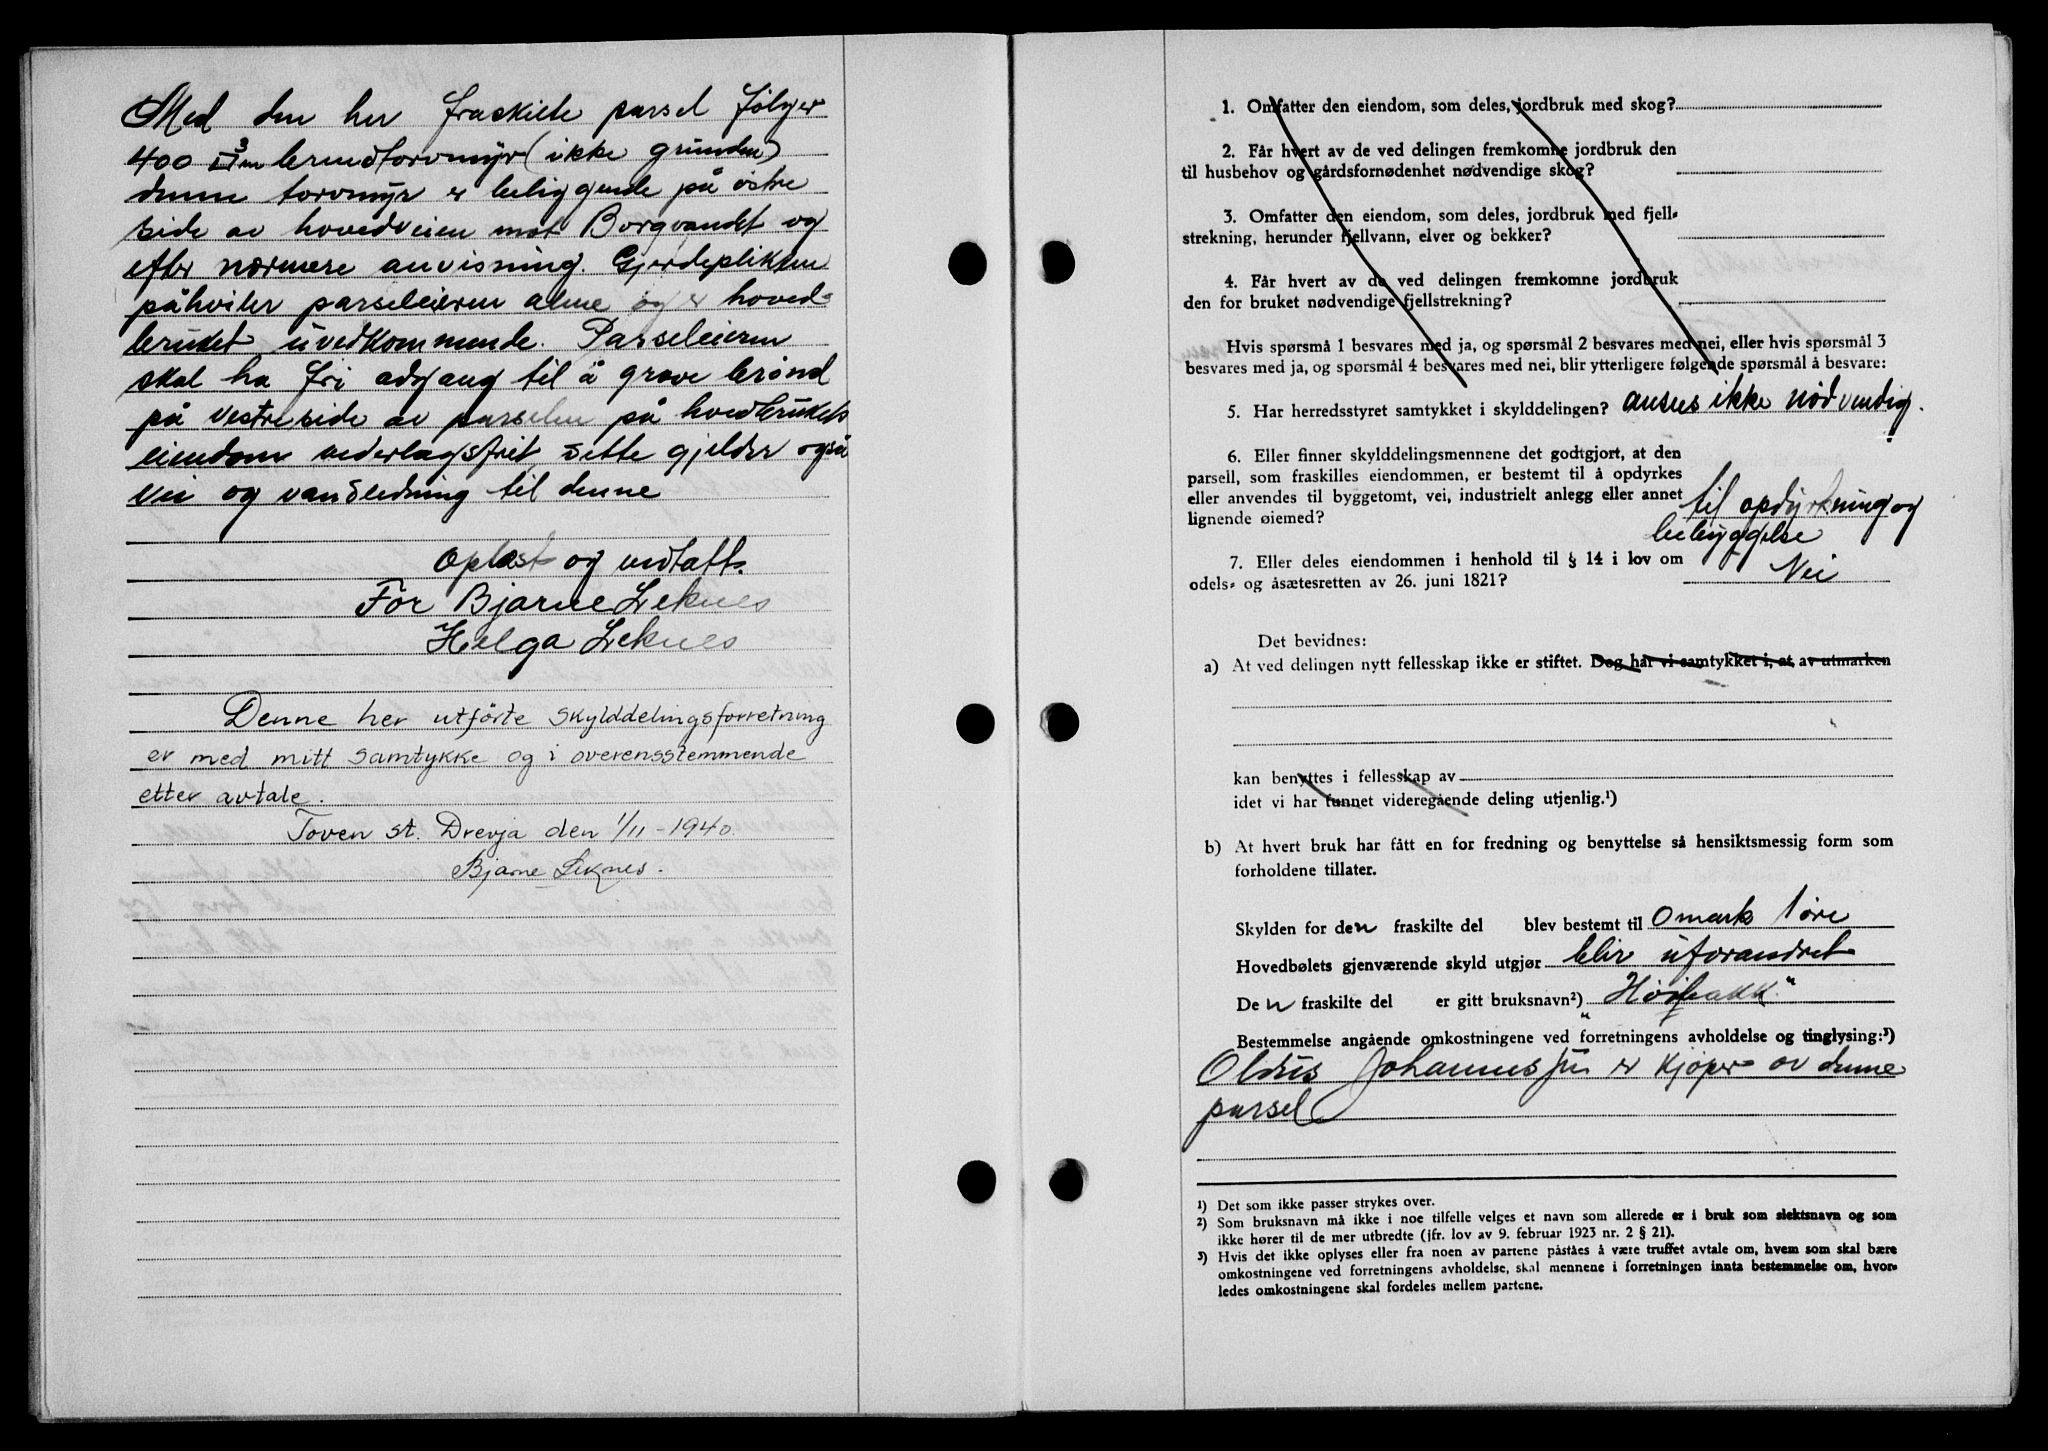 Med den her fraskilte parsel følger
400 m³ brendtorvmyr (ikke grunden)
denne torvmyr er beliggende på østre
side av hovedveien mot Borgvandet og
efter nærmere anvisning. Gjerdeplikten
påhviler parseleieren alene og er hoved-
bruket uvedkommende. Parseleieren
skal ha fri adgang til å grave brønd
på vestre side av parselen på hovedbrukets
eiendom vederlagsfrit, dette gjelder også
vei og vandledning til denne
Oplæst og vedtatt.
For Bjarne Leknes
Helga Leknes
Denne her utførte skylddelingsforretning
er med mitt samtykke og i overensstemmende
etter avtale.
Toven st. Drevja den 1/11 - 1940.
Bjarne Leknes.
1. Omfatter den eiendom, som deles, jordbruk med skog?
2. Får hvert av de ved delingen fremkomne jordbruk den
til husbehov og gårdsfornødenhet nødvendige skog?
3. Omfatter den eiendom, som deles, jordbruk med fjell-
strekning, herunder fjellvann, elver og bekker?
4. Får hvert av de ved delingen fremkomne jordbruk
den for bruket nødvendige fjellstrekning?
Hvis spørsmå 1 besvares med ja, og spørsmål 2 besvares med nei, eller hvis spørsmål 3
besvares med ja, og spørsmål 4 besvares med nei, blir ytterligere følgende spørsmål å besvare:
5. Har herredsstyret samtykket i skylddelingen? ansees ikke nødvendig.
6. Eller finner skylddelingsmennene det godtgjort, at den
parsell, som fraskilles eiendommen, er bestemt til å opdyrkes
eller anvendes til byggetomt, vei, industrielt anlegg eller annet
lignende øiemed? til opdyrkning og
bebyggelse
7. Eller deles eiendommen i henhold til § 14 i lov om
odels- og åsætesretten av 26. juni 1821? Nei
Det bevidnes:
a) At ved delingen nytt fellesskap ikke er stiftet. Dog har vi samtykket i, at av utmarken
kan benyttes i fellesskap av
idet vi har funnet videregående deling utjenlig.¹)
b) At hvert bruk har fått en for fredning og benyttelse så hensiktsmessig form som
forholdene tillater.
Skylden for den fraskilte del blev bestemt til 0 mark 1 øre
Hovedbølets gjenværende skyld utgjør blir uforandret
Den fraskilte del er gitt bruksnavn²) „Høibakk"
Bestemmelse angående omkostningene ved forretningens avholdelse og tinglysing:³)
Oldus Johannessen er kjøper av denne
parsel
¹) Det som ikke passer strykes over.
²) Som bruksnavn må ikke i noe tilfelle velges et navn som allerede er i bruk som slektsnavn og som
ikke hører til de mer utbredte (jfr. lov av 9. februar 1923 nr. 2 § 21).
³) Hvis det ikke oplyses eller fra noen av partene påståes å være truffet avtale om, hvem som skal bære
omkostningene ved forretningens avholdelse, skal mennene i forretningen innta bestemmelse om, hvor-
ledes omkostningene skal fordeles mellem partene.